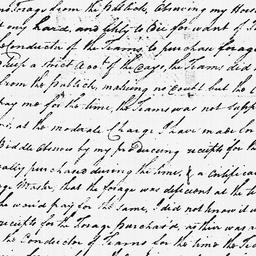 no Forage from the Publick, Chewing my Horses
my hand, and likely to Die for want of
Conductor of the Teams, to purchase forage
keep a strict Acct. of the Days, the Teams did
from the Publick, making no doubt but the
pay me for the time, the Teams was not Supp
at the moderate Charge I have made
Biddle Chews by my producing receipts for the
ally purchased during the time, & a Certificate
ge Master, that the forage was deficient at the
he would pay for the Same, I did not know it
receipts for the Forage purchas'd, neither was
the Conductor of Teams for the time the